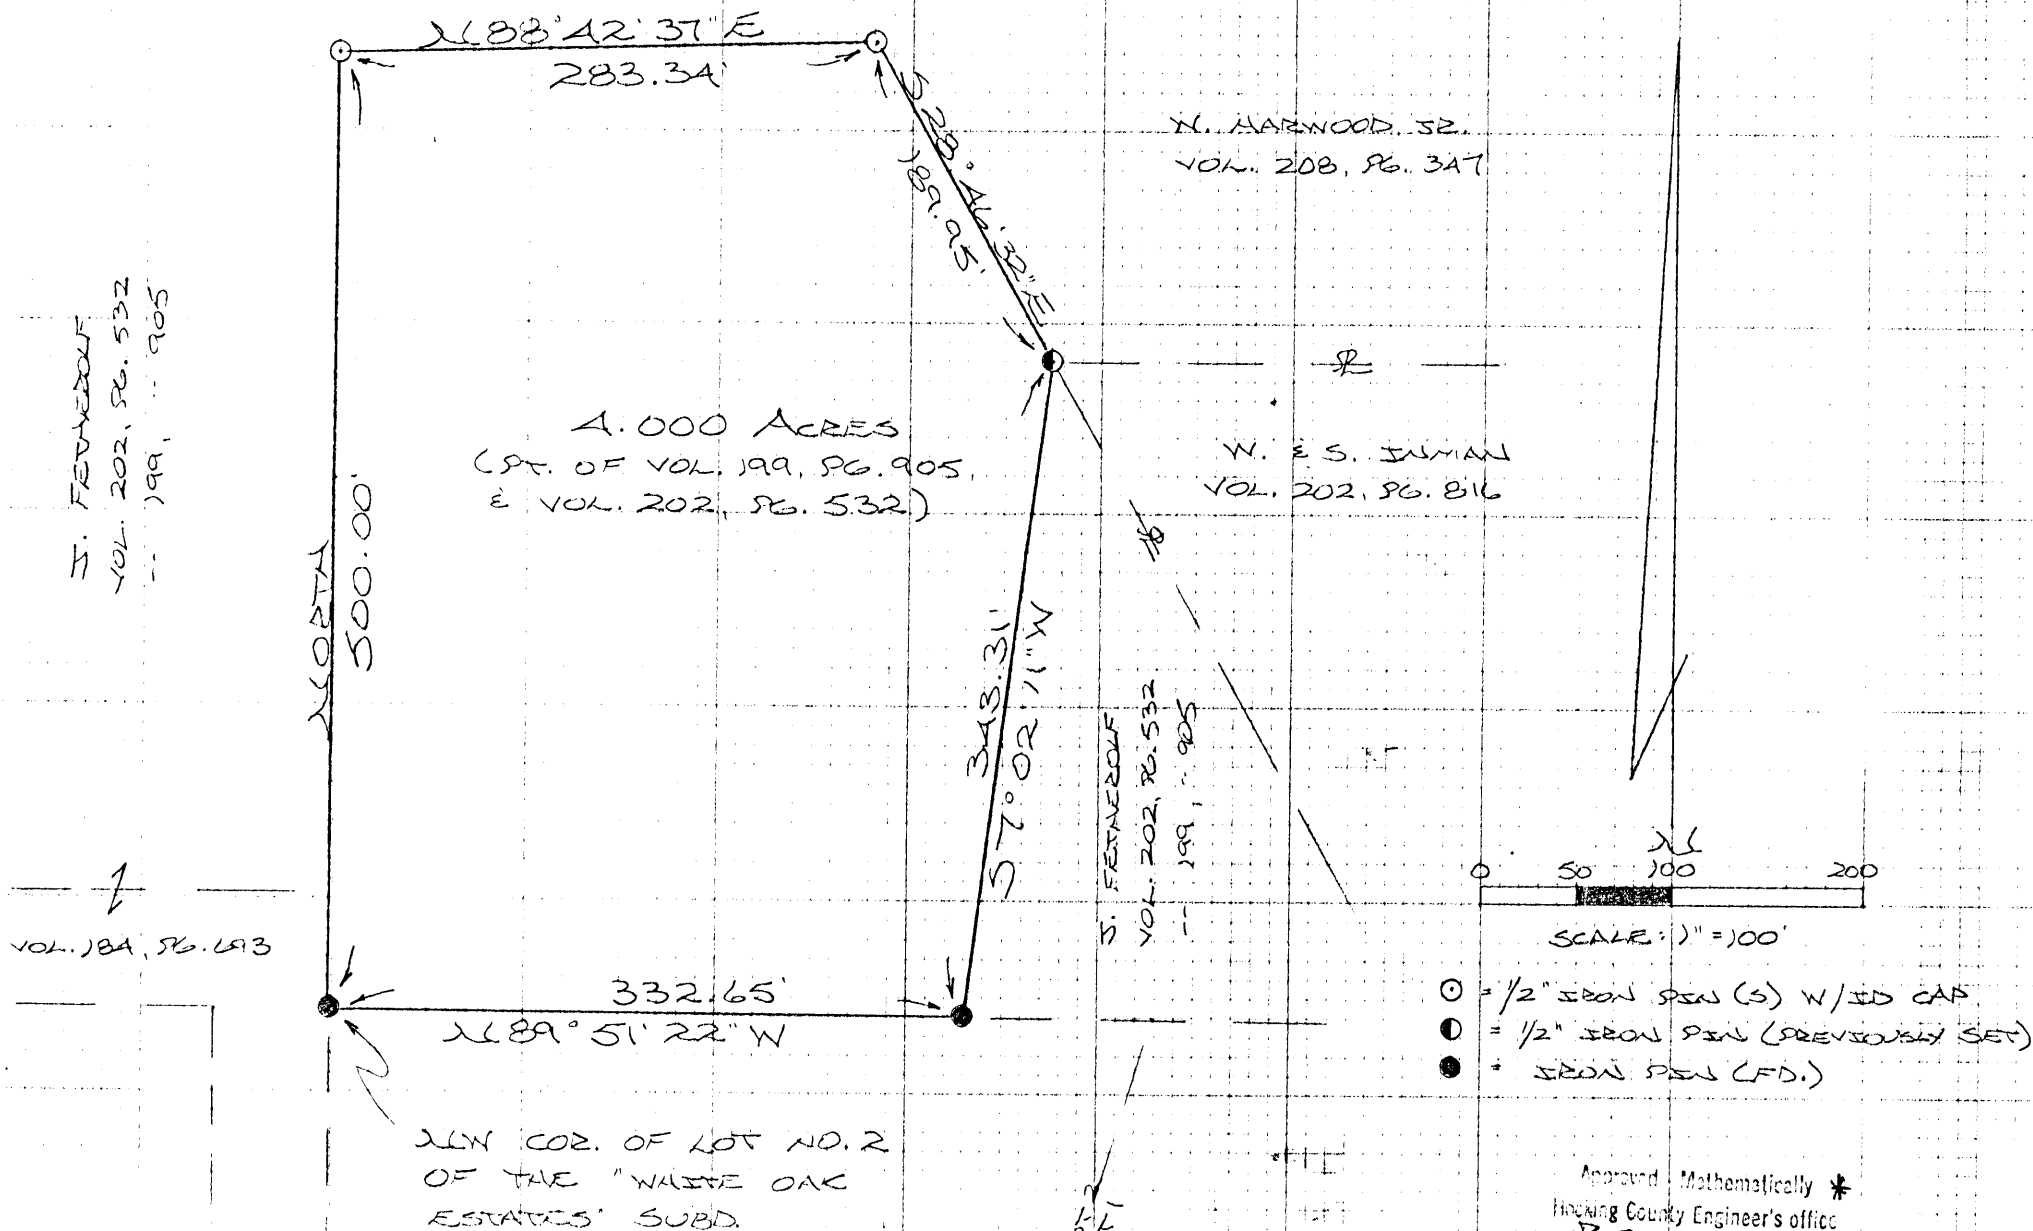 N 88° 42' 37" E
283.34'
S 28° 46' 32" E
189.05'
W. HARWOOD JR.
VOL. 208, PG. 347
J. FETHEROLF
VOL. 202, PG. 532
-- 199, -- 905
4.000 ACRES
(PT. OF VOL. 199, PG. 905,
& VOL. 202, PG. 532)
PL
W. & S. INMAN
VOL. 202, PG. 816
NORTH
500.00'
343.31'
S 7° 02' 11" W
J. FETHEROLF
VOL. 202, PG. 532
-- 199, -- 905
VOL. 184, PG. 693
N
0 50 100 200
SCALE: 1" = 100'
332.65'
N 89° 51' 22" W
= 1/2" IRON PIN (S) W/ID CAP
= 1/2" IRON PIN (PREVIOUSLY SET)
= IRON PIN (FD.)
NW COR. OF LOT NO. 2
OF THE "WHITE OAK
ESTATES" SUBD.
Approved Mathematically
Hocking County Engineer's office